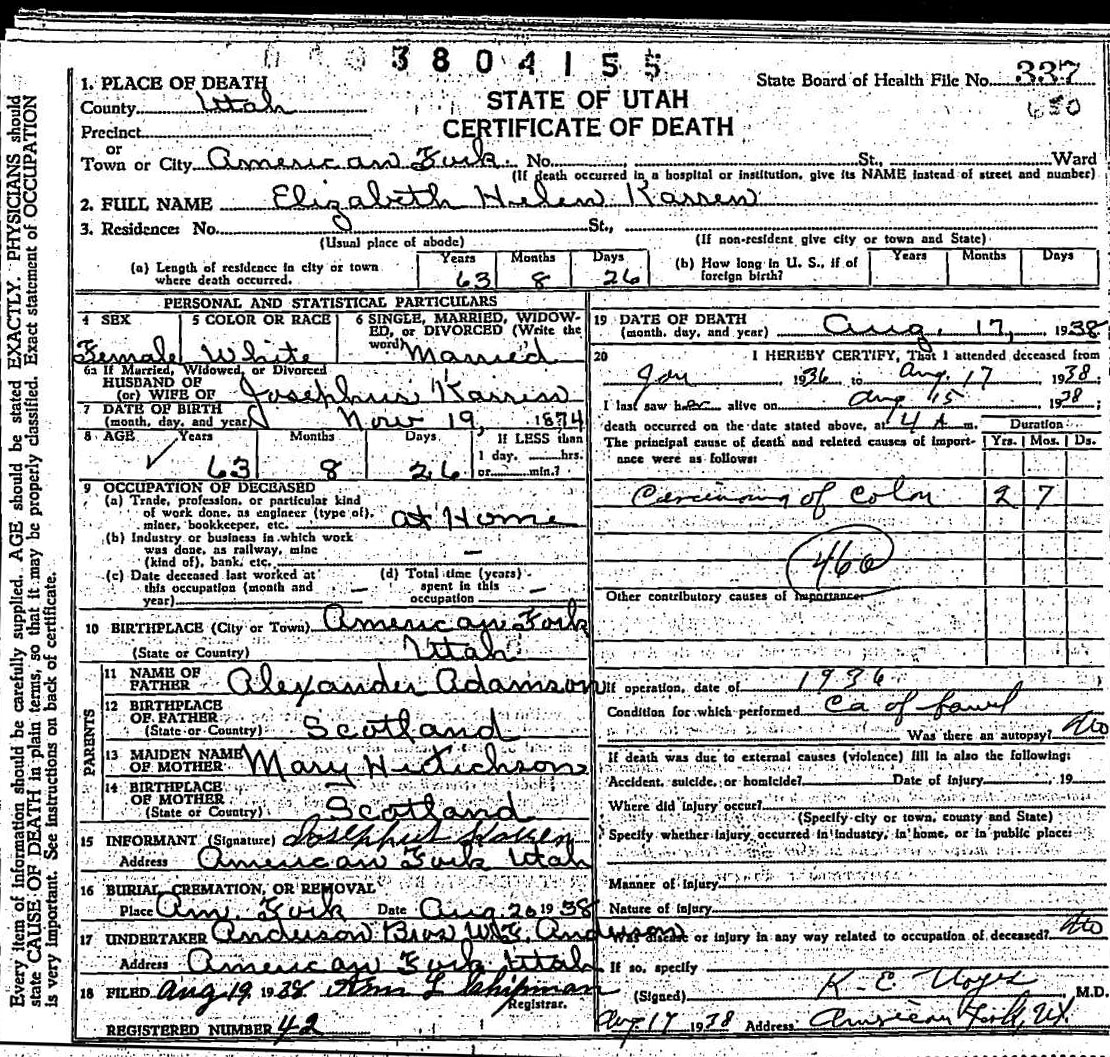 3804155
State Board of Health File No. 337
650
STATE OF UTAH
CERTIFICATE OF DEATH
1. PLACE OF DEATH
County Utah
Precinct
or
Town or City American Fork No. St., Ward
(If death occurred in a hospital or institution, give its NAME instead of street and number)
2. FULL NAME Elizabeth Helen Karren
3. Residence: No. St.,
(Usual place of abode) (If non-resident give city or town and State)
(a) Length of residence in city or town where death occurred. Years 63 Months 8 Days 26
(b) How long in U. S., if of foreign birth? Years Months Days
PERSONAL AND STATISTICAL PARTICULARS
4 SEX Female
5 COLOR OR RACE White
6 SINGLE, MARRIED, WIDOWED, or DIVORCED (Write the word) Married
6a If Married, Widowed, or Divorced
HUSBAND OF
(or) WIFE OF Josephus Karren
7 DATE OF BIRTH
(month, day, and year) Nov 19, 1874
8 AGE Years 63 Months 8 Days 26 If LESS than 1 day. hrs. or min.?
9 OCCUPATION OF DECEASED
(a) Trade, profession, or particular kind
of work done, as engineer (type of),
miner, bookkeeper, etc. at Home
(b) Industry or business in which work
was done, as railway, mine
(kind of), bank, etc. —
(c) Date deceased last worked at
this occupation (month and
year) —
(d) Total time (years)
spent in this
occupation —
10 BIRTHPLACE (City or Town) American Fork
(State or Country) Utah
PARENTS
11 NAME OF
FATHER Alexander Adamson
12 BIRTHPLACE
OF FATHER
(State or Country) Scotland
13 MAIDEN NAME
OF MOTHER Mary
14 BIRTHPLACE
OF MOTHER
(State or Country) Scotland
15 INFORMANT (Signature) Josephus Karren
Address American Fork Utah
16 BURIAL, CREMATION, OR REMOVAL
Place Am. Fork Date Aug 20 1938
17 UNDERTAKER Anderson Bros Anderson
Address American Fork Utah
18 FILED Aug 19 1938 Chipman
Registrar.
REGISTERED NUMBER 42
19 DATE OF DEATH
(month, day, and year) Aug. 17, 1938
20 I HEREBY CERTIFY, That I attended deceased from
Jan 1936 to Aug. 17 1938
I last saw her alive on Aug 15 1938
death occurred on the date stated above, at 4 A m.
Duration
The principal cause of death and related causes of importance were as follows: Yrs. Mos. Ds.
Carcinoma of Colon 2 7
460
Other contributory causes of importance:
If operation, date of 1936
Condition for which performed Ca of bowel
Was there an autopsy? No
If death was due to external causes (violence) fill in also the following:
Accident, suicide, or homicide? Date of injury 19
Where did injury occur?
(Specify city or town, county and State)
Specify whether injury occurred in industry, in home, or in public place:
Manner of injury
Nature of injury
Was disease or injury in any way related to occupation of deceased? No
If so, specify
(Signed) K. E. M.D.
Aug 17 1938 Address American Fork, Ut.
Every item of information should be carefully supplied. AGE should be stated EXACTLY. PHYSICIANS should
state CAUSE OF DEATH in plain terms, so that it may be properly classified. Exact statement of OCCUPATION
is very important. See instructions on back of certificate.